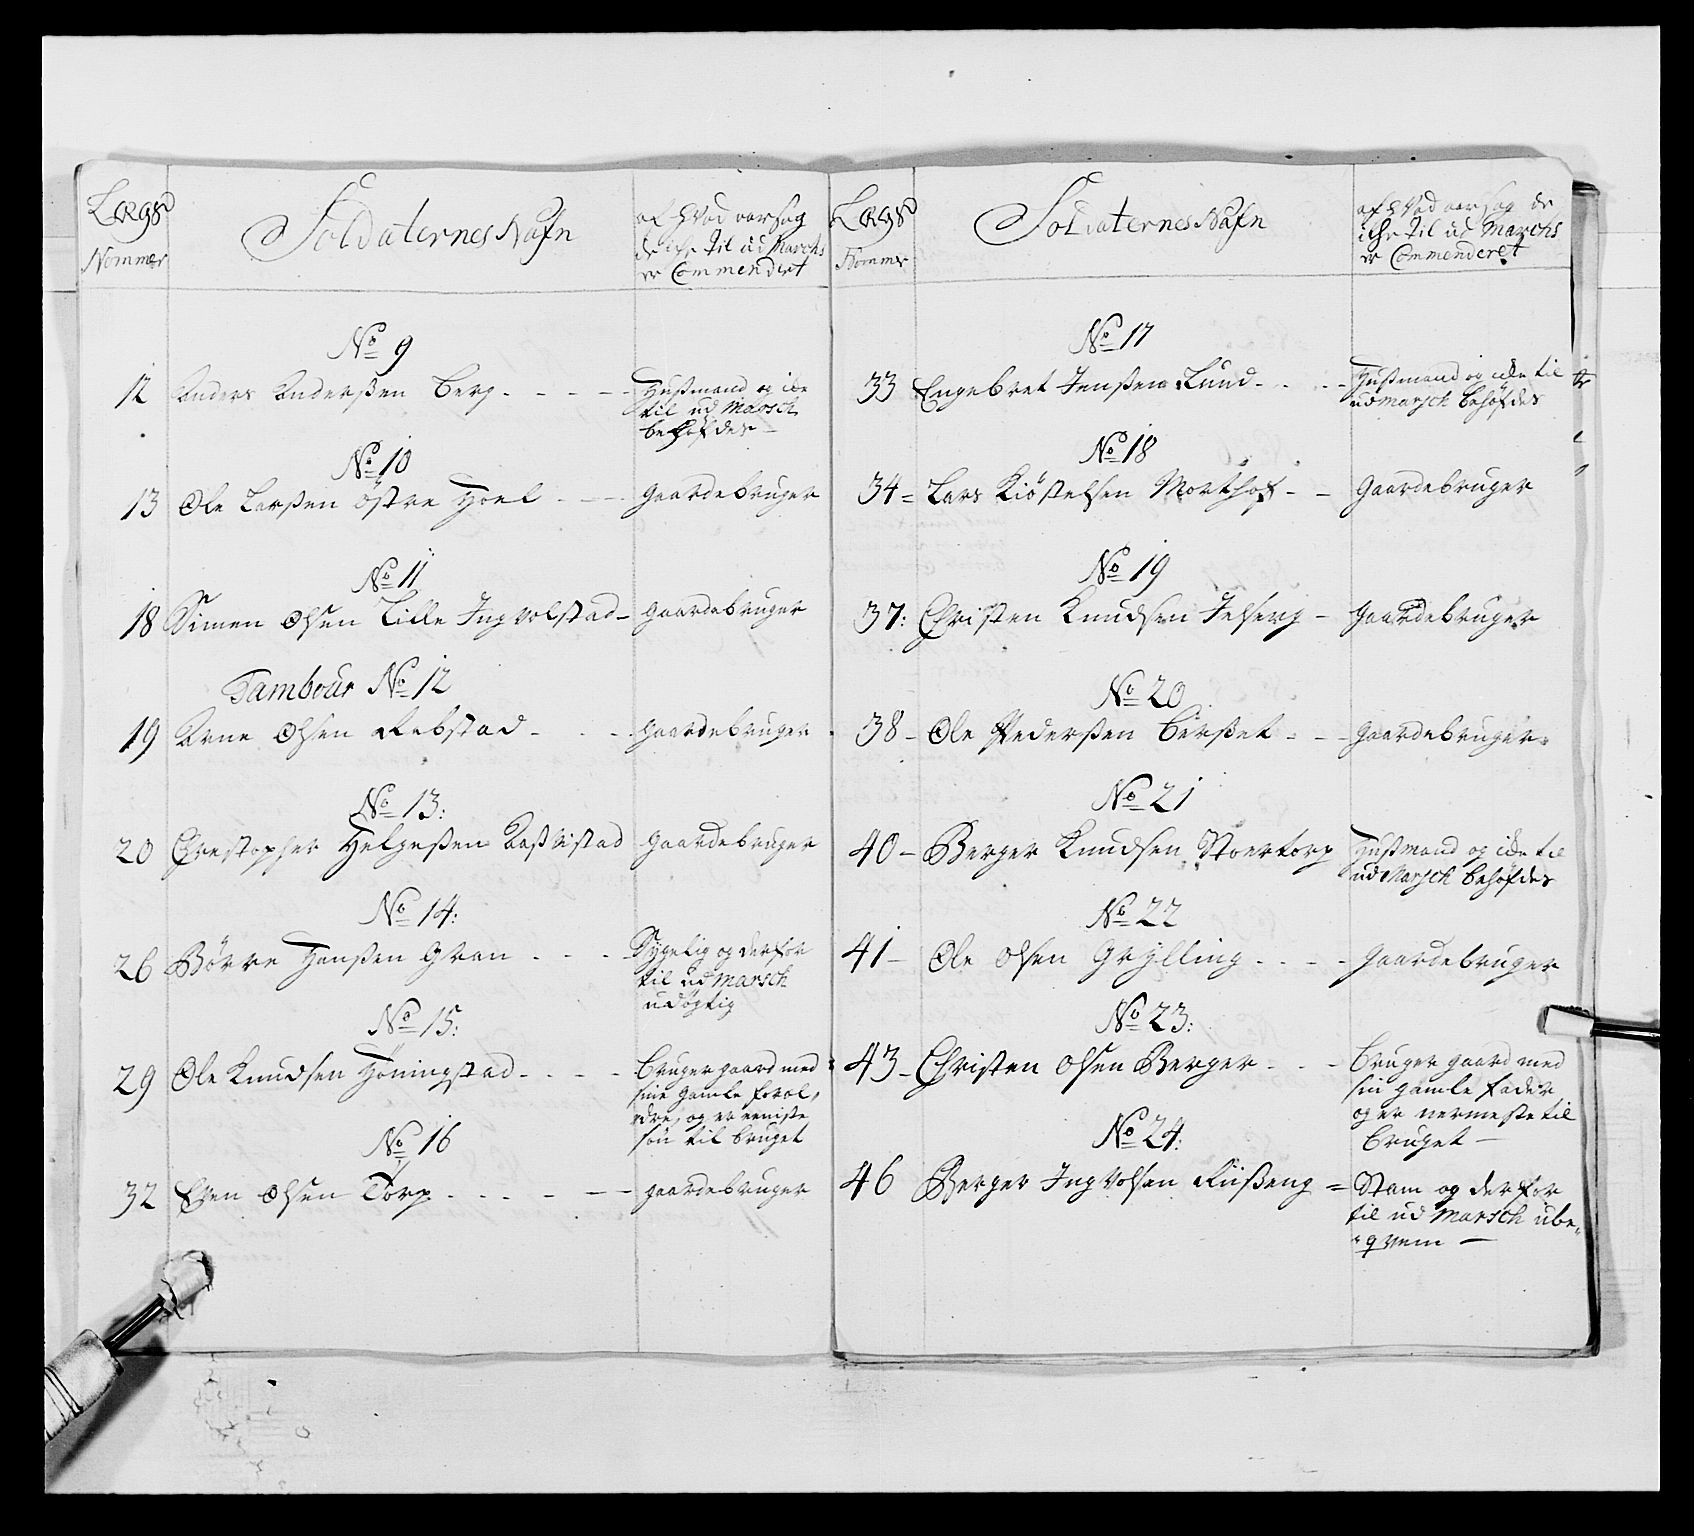 Lægs
Nommer
Soldaternes Nafn
af hvad aarsag
de icke til ud Marchs
er Commendert
No 9
12 Anders Anderßen Berg
Hußmand og icke
til ud Marsch
behøfdes
No 10
13 Ole Larßen østre Hoel
Gaardebruger
No 11
18 Simen Olsen Lille Ingvolstad
Gaardebruger
Tambour No 12
19 Arne Olsen Rebstad
Gaardebruger
No 13:
20 Christopher Helgeßen
Gaardebruger
No 14:
26 Børre Hanßen Gran
Sygelig og derfor
til ud Marsch
udøgtig
No 15:
29 Ole Knudsen Høningstad
Bruger gaard med
sine gamle foræl,
dre, og er eeniste
søn til bruget
No 16
32 Even Olsen Torp
gaardebruger
Lægs
Nommer
Soldaternes Nafn
af hvad aarsag de
icke til ud Marchs
er Commenderet
No 17
33 Engebret Jenßen Lund
Hußmand og icke til
udmarsch behøfdes
No 18
34 = Lars Kiøstelsen Morthof
Gaardebruger
No 19
37: Christen Knudsen
Gaardebruger
No 20
38 - Ole Pederßen Berßet
Gaardebruger
No 21
40 - Berger Knudsen Stoertorp
Hußmand og icke til
ud Marsch behøfdes
No 22
41 - Ole Olsen Grylling
Gaardebruger
No 23:
43 - Christen Olsen Berger
Bruger gaard med
sin gamle fader
og er nermeste til
bruget -
No 24:
46 Berger Ingvolsen Riißeng =
Stam og derfor
til ud Marsch ube„
„qvem -